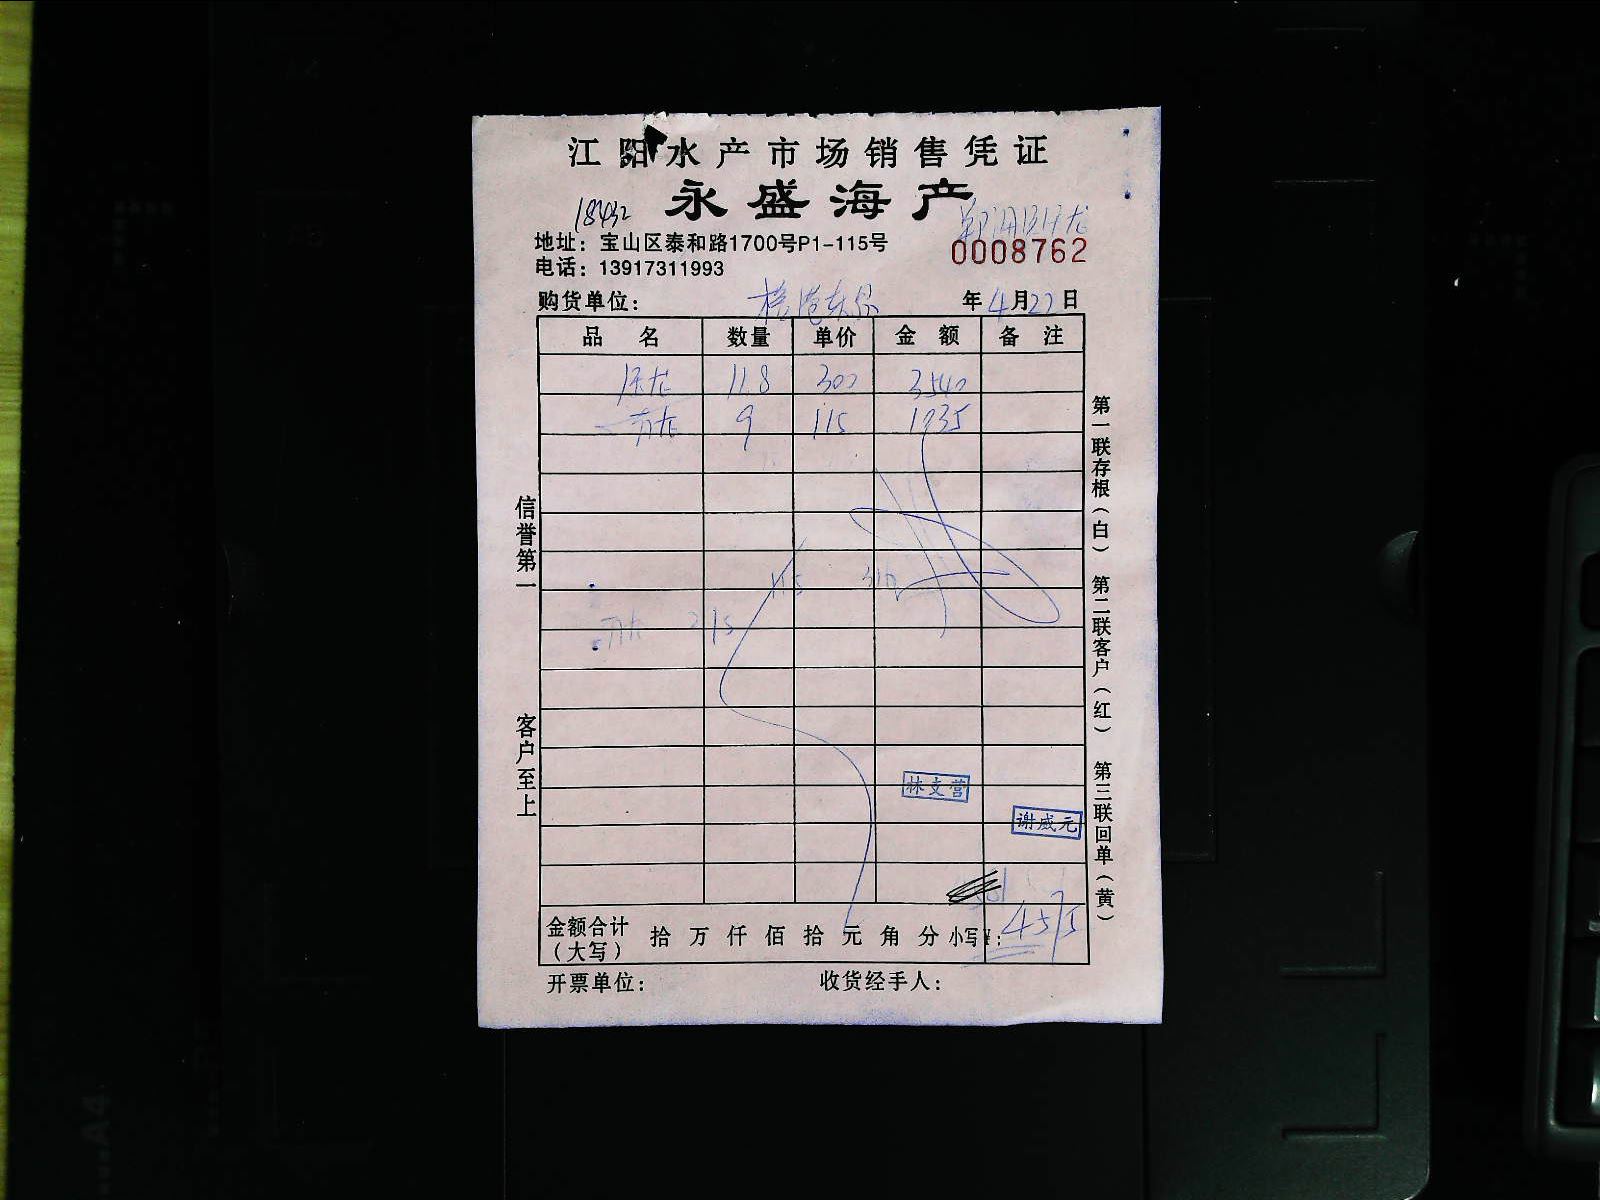 江阳水产市场销售凭证
永盛海产
18432
地址：宝山区泰和路1700号P1-115号
0008762
电话：13917311993
购货单位： 年4月22日
品名 数量 单价 金额 备注
11.8 300 3540
青龙 9 115 1035
115
青龙 215
信誉第一
客户至上
第一联存根（白） 第二联客户（红） 第三联回单（黄）
林文营
谢威元
金额合计（大写） 拾 万 仟 佰 拾 元 角 分 小写¥： 4575
开票单位： 收货经手人：